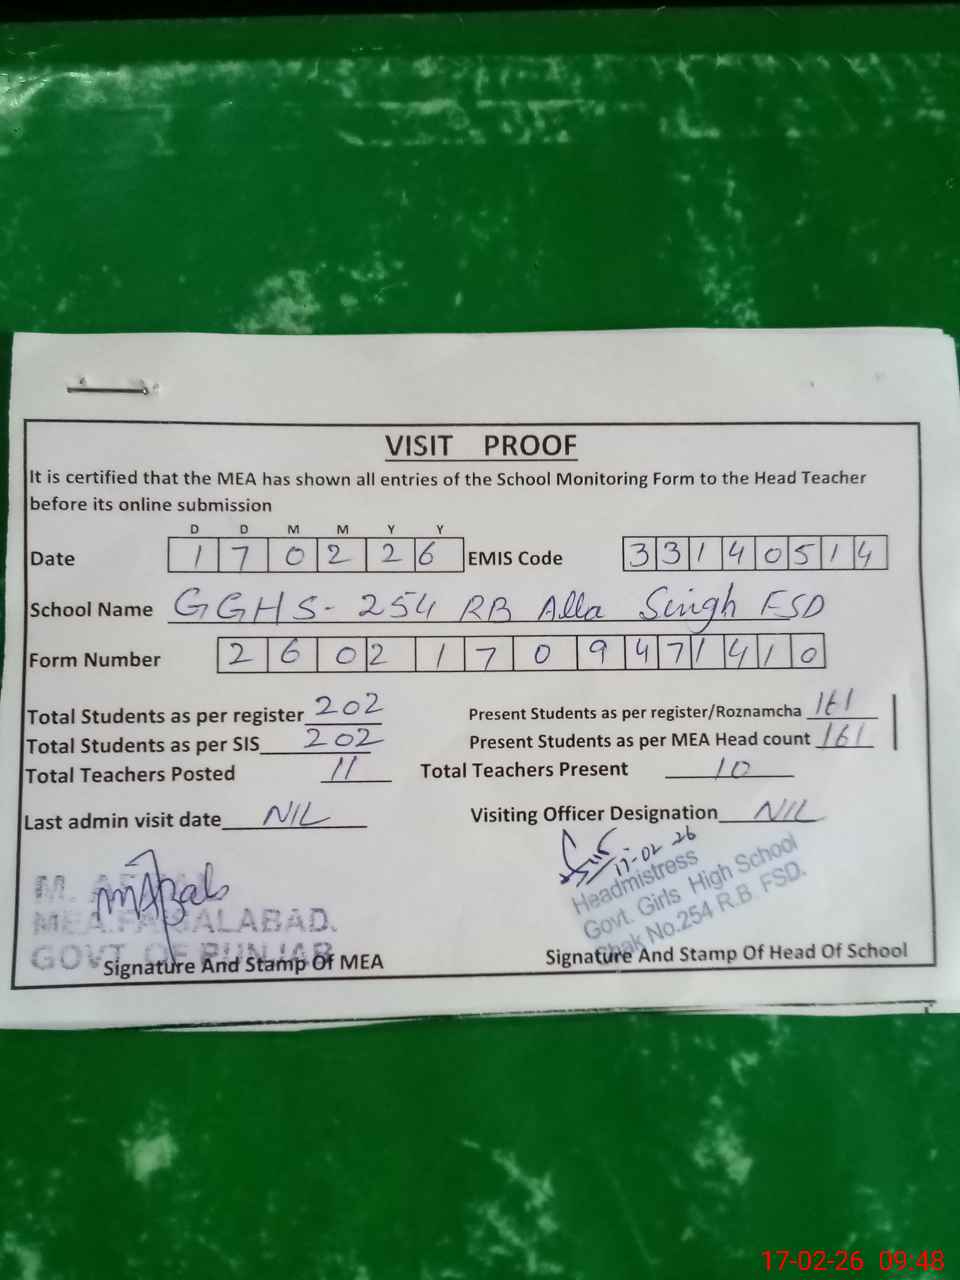 VISIT PROOF
It is certified that the MEA has shown all entries of the School Monitoring Form to the Head Teacher
before its online submission
D D M M Y Y
Date 1 7 0 2 2 6 EMIS Code 3 3 1 4 0 5 1 4
School Name GGHS- 254 RB Alla Singh FSD
Form Number 2 6 0 2 1 7 0 9 4 7 1 4 1 0
Total Students as per register 202 Present Students as per register/Roznamcha 161
Total Students as per SIS 202 Present Students as per MEA Head count 161
Total Teachers Posted 11 Total Teachers Present 10
Last admin visit date NIL Visiting Officer Designation NIL
17-02-26
M.
MEA.FAISALABAD.
GOVT. OF PUNJAB
Headmistress
Govt. Girls High School
Chak No.254 R.B. FSD.
Signature And Stamp Of MEA Signature And Stamp Of Head Of School
17-02-26 09:48